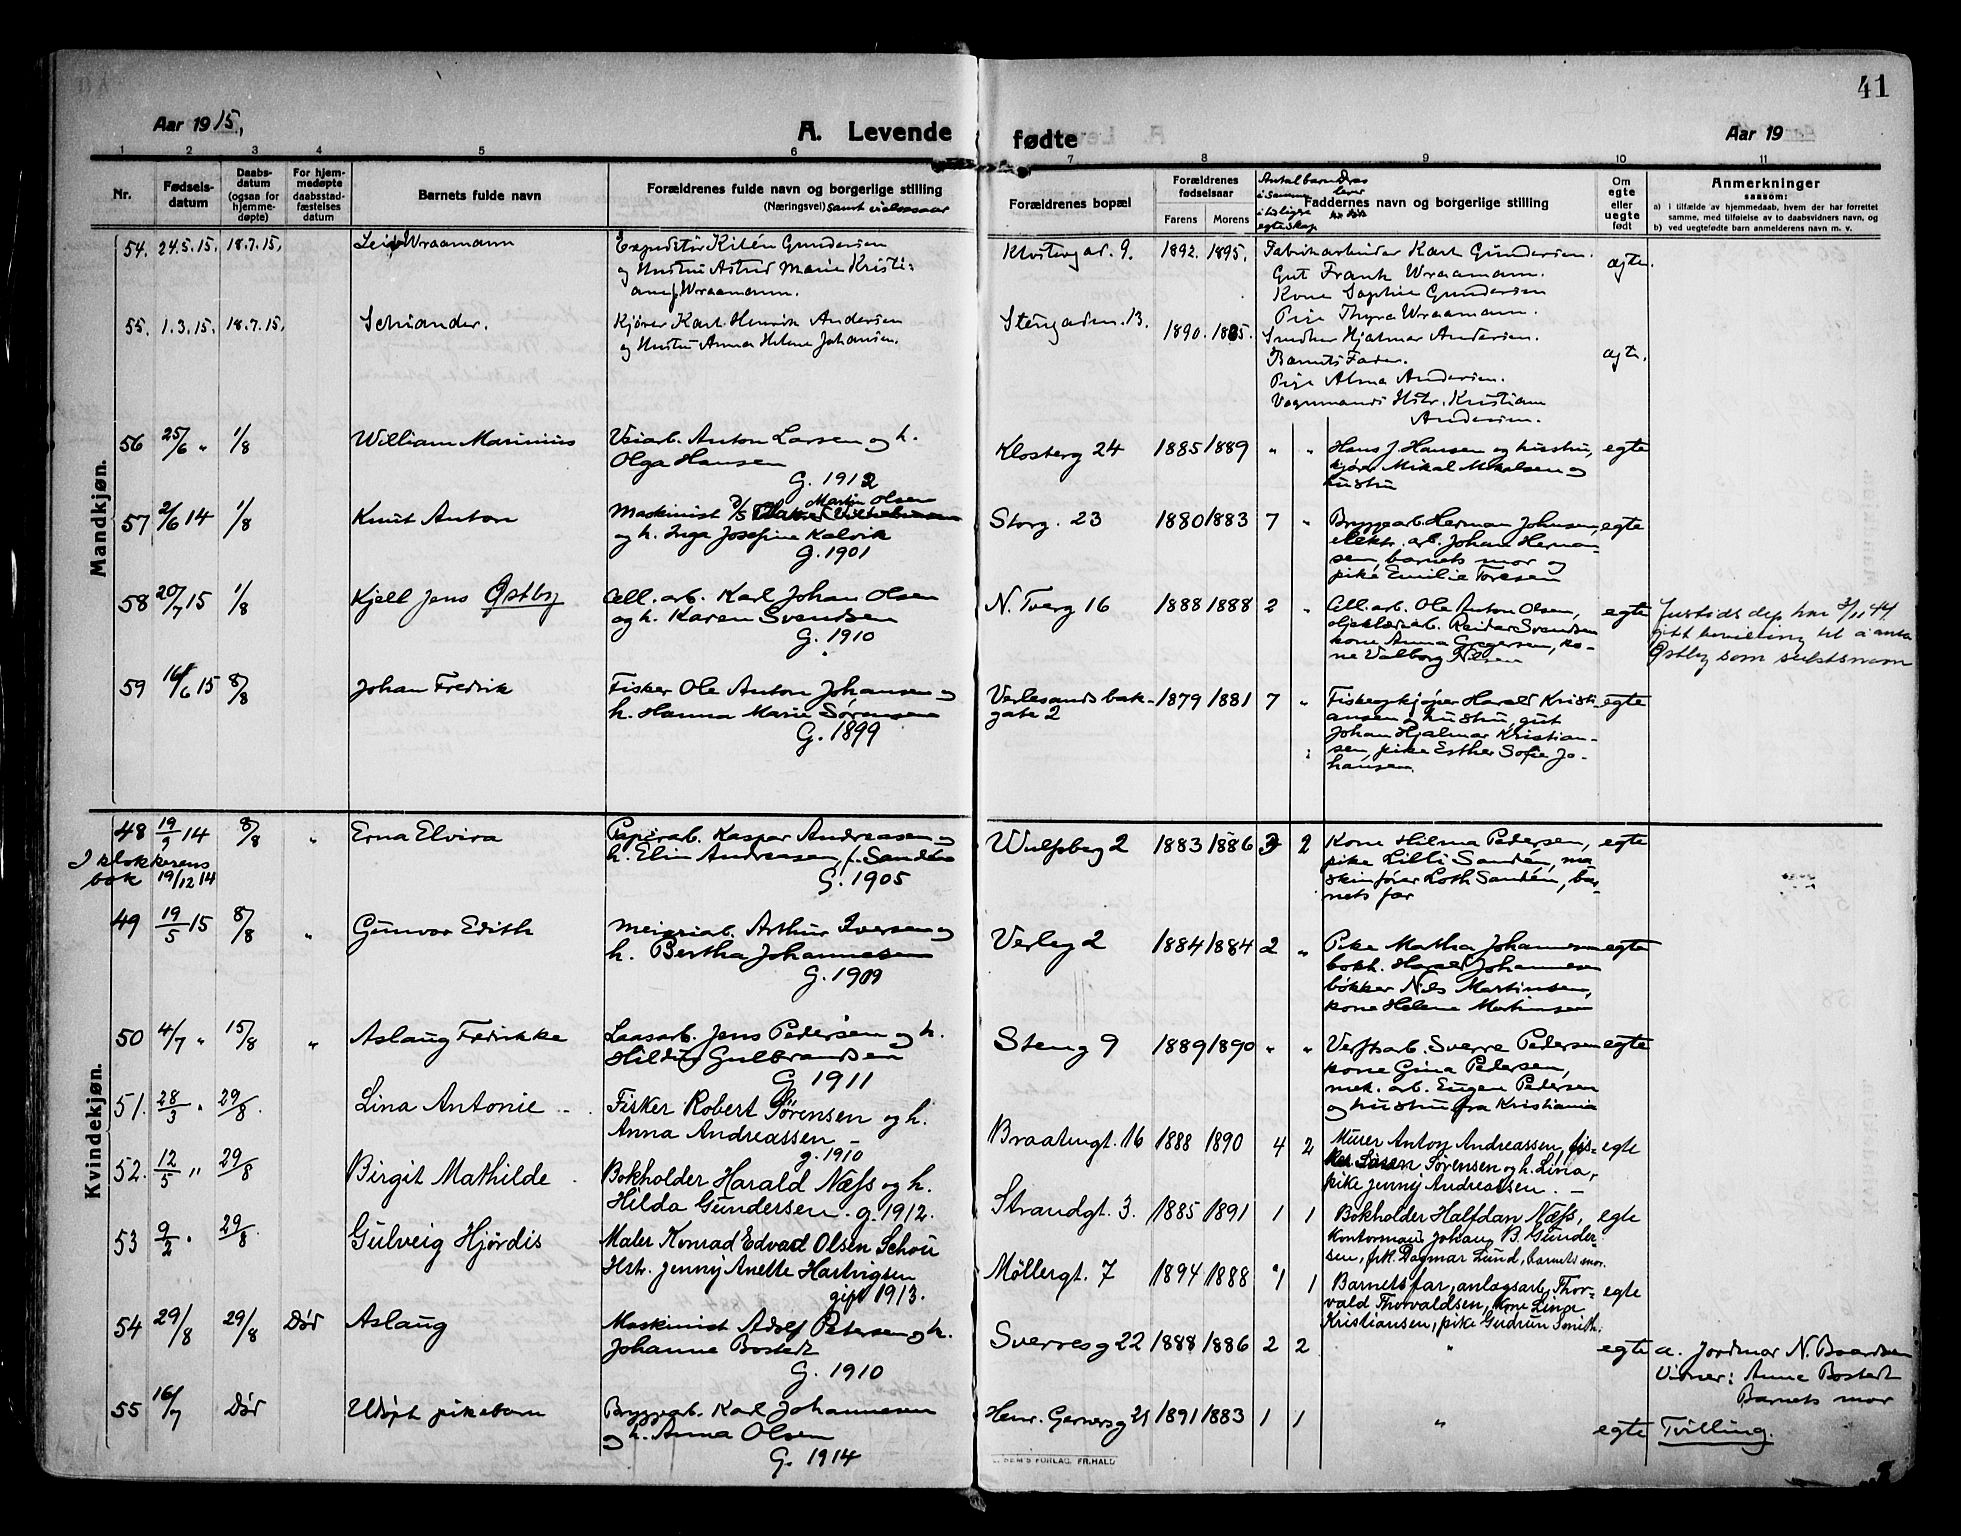 41
Aar 1915.
A. Levende fødte
Aar 19
1 2 3 4 5 6 7 8 9 10 11
Nr.
Fødsels-
datum
Daabs-
datum
(ogsaa for
hjemme-
døpte)
For hjem-
medøpte
daabsstad-
fæstelses
datum
Barnets fulde navn
Forældrenes fulde navn og borgerlige stilling
(Næringsvei) samt vielsesaar
Forældrenes bopæl
Forældrenes
fødselsaar
Farens Morens
Antal barn
i samme
tidligere
egteskap
Faddernes navn og borgerlige stilling
Om
egte
eller
uegte
født
Anmerkninger
saasom:
a) i tilfælde av hjemmedaab, hvem der har forrettet
samme, med tilføielse av to daabsvidners navn, og
b) ved uegtefødte barn anmelderens navn m. v.
Mandkjøn.
54. 24.5.15. 18.7.15. Leif Wraamann
Expeditør Kilén Gundersen
og Hustru Astrid Marie Kristi-
ane f. Wraamann.
Klostergad. 9. 1892. 1895.
Fabrikarbeider Karl Gundersen.
Gut Frank Wraamann.
Kone Sophie Gundersen
Pige Thyra Wraamann.
ægte.
55. 1.3.15. 18.7.15. Schiander.
Kjører Karl Henrik Andersen
og Hustru Anna Helene Johansen.
Stengaden. 13. 1890.
Snedker Hjalmar Andersen.
Barnets Fader.
Pige Alma Andersen.
Vognmands Hstr. Kristiane
Andersen.
ægte.
56 25/6 " 1/8 William Marinius
Veiarb. Anton Larsen og h.
Olga Hansen
G. 1912
Klosterg 24 1885 1889 " "
Hans J. Hansen og hustru,
kjører Mikal Mikalsen og
hustru
egte
57 2/6 14 1/8 Knut Anton
Maskinist D/S Martin Olsen
og h. Inga Josefine Kalvik
G. 1901
Storg. 23 1880 1883 7 "
Bryggearb. Herman Johnsen,
elektr. arb. Johan Herman-
sen, barnets mor og
pike Emilie Toresen
egte
58 20/7 15 1/8 Kjell Jens Østby
Cell. arb. Karl Johan Olsen
og h. Karen Svendsen
G. 1910
N. Tverg 16 1888 1888 2 "
Cell. arb. Ole Anton Olsen,
oljeklædearb. Reidar Svendsen
kone Anna Gregersen, ko-
ne Valborg Nilsen
egte
Justitsdep. har 3/11 44
gitt bevilling til å anta
Østby som slektsnavn
59 16/6 15 8/8 Johan Fredrik
Fisker Ole Anton Johansen og
h. Hanna Marie Sørensen
G. 1899
Verlesands bak-
gate 2 1879 1881 7 "
Fiskeopkjøper Harald Kristi-
ansen og hustru, gut
Johan Hjalmar Kristian-
sen, pike Esther Sofie Jo-
hansen.
egte
Kvindekjøn.
48 19/9 14 8/8 " Erna Elvira
I klokkerens
bok 19/12 14
Papirarb. Kaspar Andreasen og
h. Elin Andreasen, f. Sandén
G. 1905
Wulfsbeg 2 1883 1886 3 2
Kone Hilma Pedersen,
pike Lilli Sandén, ma
skinfører Loth Sandén, bar-
nets far
egte
49 19/5 15 8/8 " Gunvor Edith
Meieriarb. Arthur Iversen og
h. Bertha Johannesen
G. 1909
Verleg 2 1884 1884 2 "
Pike Martha Johannesen
bokh. Harald Johannesen
bøkker Nils Martinsen,
kone Helene Martinsen
egte
50 4/7 " 15/8 " Aslaug Fredrikke
Laasarb. Jens Pedersen og h.
Hildur Gulbrandsen
G. 1911
Steng 9 1889 1890 " "
Verftsarb. Sverre Pedersen
kone Gina Pedersen,
mek. arb. Eugen Pedersen
og hustru fra Kristiania
egte
51. 28/3 " 29/8. Lina Antonie
Fisker Robert Sørensen og h.
Anna Andreassen
g. 1910
Braatengt. 16 1888 1890 4 2
Murer Anton Andreassen, fis-
ker Søren Sørensen og h. Lina,
pike Jenny Andreassen.
egte
52. 12/5 " 29/8 Birgit Mathilde
Bokholder Harald Næss og h.
Hilda Gundersen. g. 1912.
Strandgt. 3. 1885 1891 1 1
Bokholder Halfdan Næss,
Kontormand Johan B. Gunder-
sen, frk. Dagmar Lund, barnets mor.
egte
53 9/2 " 29/8. Gulveig Hjørdis
Maler Konrad Edvard Olsen Schou
Hstr. Jenny Anette Hartvigsen
gift 1913.
Møllergt. 7 1894 1888 1 1
Barnets far, anlægsarb. Thor-
vald Thorvaldsen, Kone Lina
Kristiansen, pike Gudrun Smith.
egte
54 29/8 29/8 Død Aslaug
Maskinist Adolf Petersen og h.
Johanne Bostedt
G. 1910
Sverresg 22 1888 1886 2 2 " egte
a. Jordmor N. Baardsen
Vidner: Anne Bostedt
Barnets mor
55 16/7 Død Udøpt pikebarn
Bryggearb. Karl Johannesen
og h. Anna Olsen
G. 1914
Henr. Gernersg 21 1891 1883 1 1 " egte Tvilling.
SEM'S FORLAG, FR.HALD